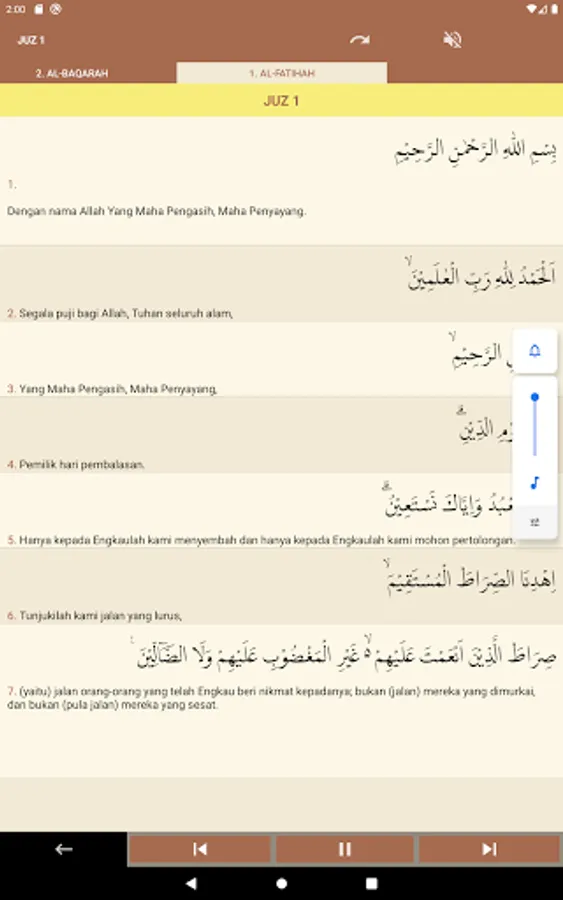 2:00
JUZ 1
2. AL-BAQARAH
1. AL-FATIHAH
JUZ 1
بِسْمِ اللّٰهِ الرَّحْمٰنِ الرَّحِيْمِ
1.
Dengan nama Allah Yang Maha Pengasih, Maha Penyayang.
اَلْحَمْدُ لِلّٰهِ رَبِّ الْعٰلَمِيْنَۙ
2. Segala puji bagi Allah, Tuhan seluruh alam,
الرَّحِيْمِۙ
3. Yang Maha Pengasih, Maha Penyayang,
الدِّيْنِۗ
4. Pemilik hari pembalasan.
وَاِيَّاكَ نَسْتَعِيْنُۗ
5. Hanya kepada Engkaulah kami menyembah dan hanya kepada Engkaulah kami mohon pertolongan.
اِهْدِنَا الصِّرَاطَ الْمُسْتَقِيْمَۙ
6. Tunjukilah kami jalan yang lurus,
صِرَاطَ الَّذِيْنَ اَنْعَمْتَ عَلَيْهِمْ ەۙ غَيْرِ الْمَغْضُوْبِ عَلَيْهِمْ وَلَا الضَّاۤلِّيْنَ
7. (yaitu) jalan orang-orang yang telah Engkau beri nikmat kepadanya; bukan (jalan) mereka yang dimurkai,
dan bukan (pula jalan) mereka yang sesat.